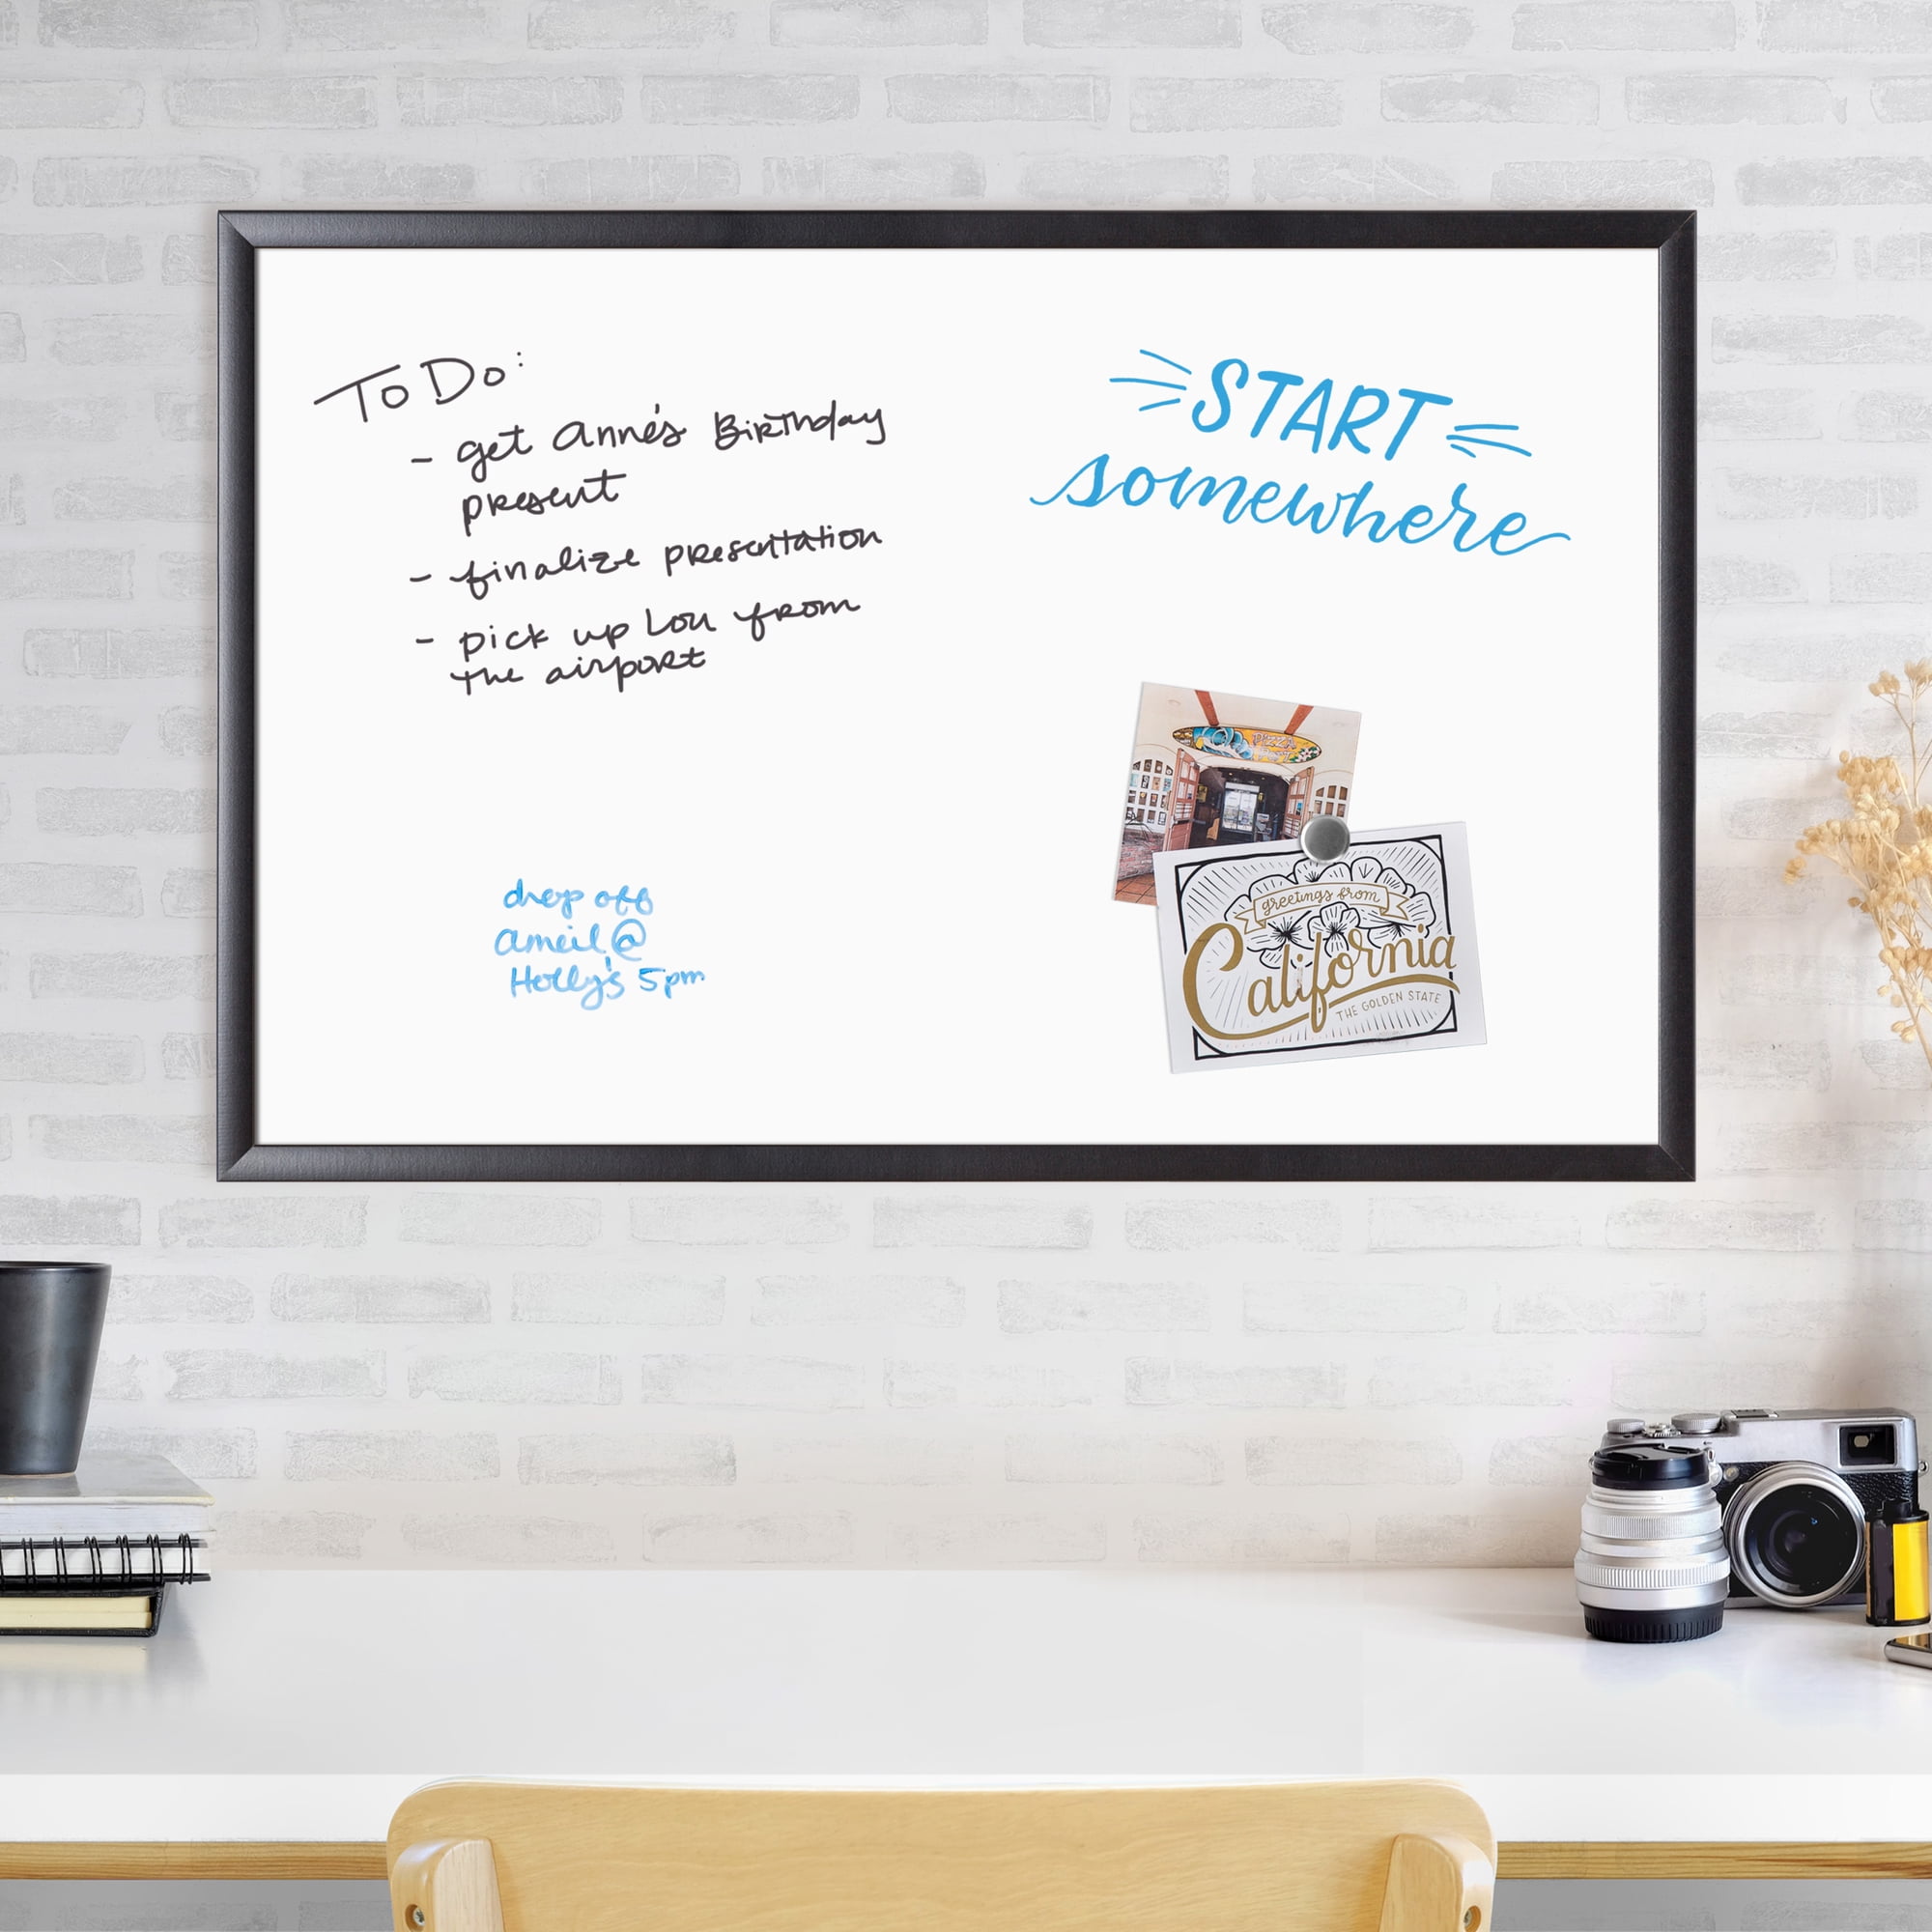 To Do:
- get Anne's Birthday
present
- finalize presentation
- pick up Lou from
the airport
drop off
Ameil @
Holly's 5pm
START
somewhere
PIZZA
greetings from
California
THE GOLDEN STATE